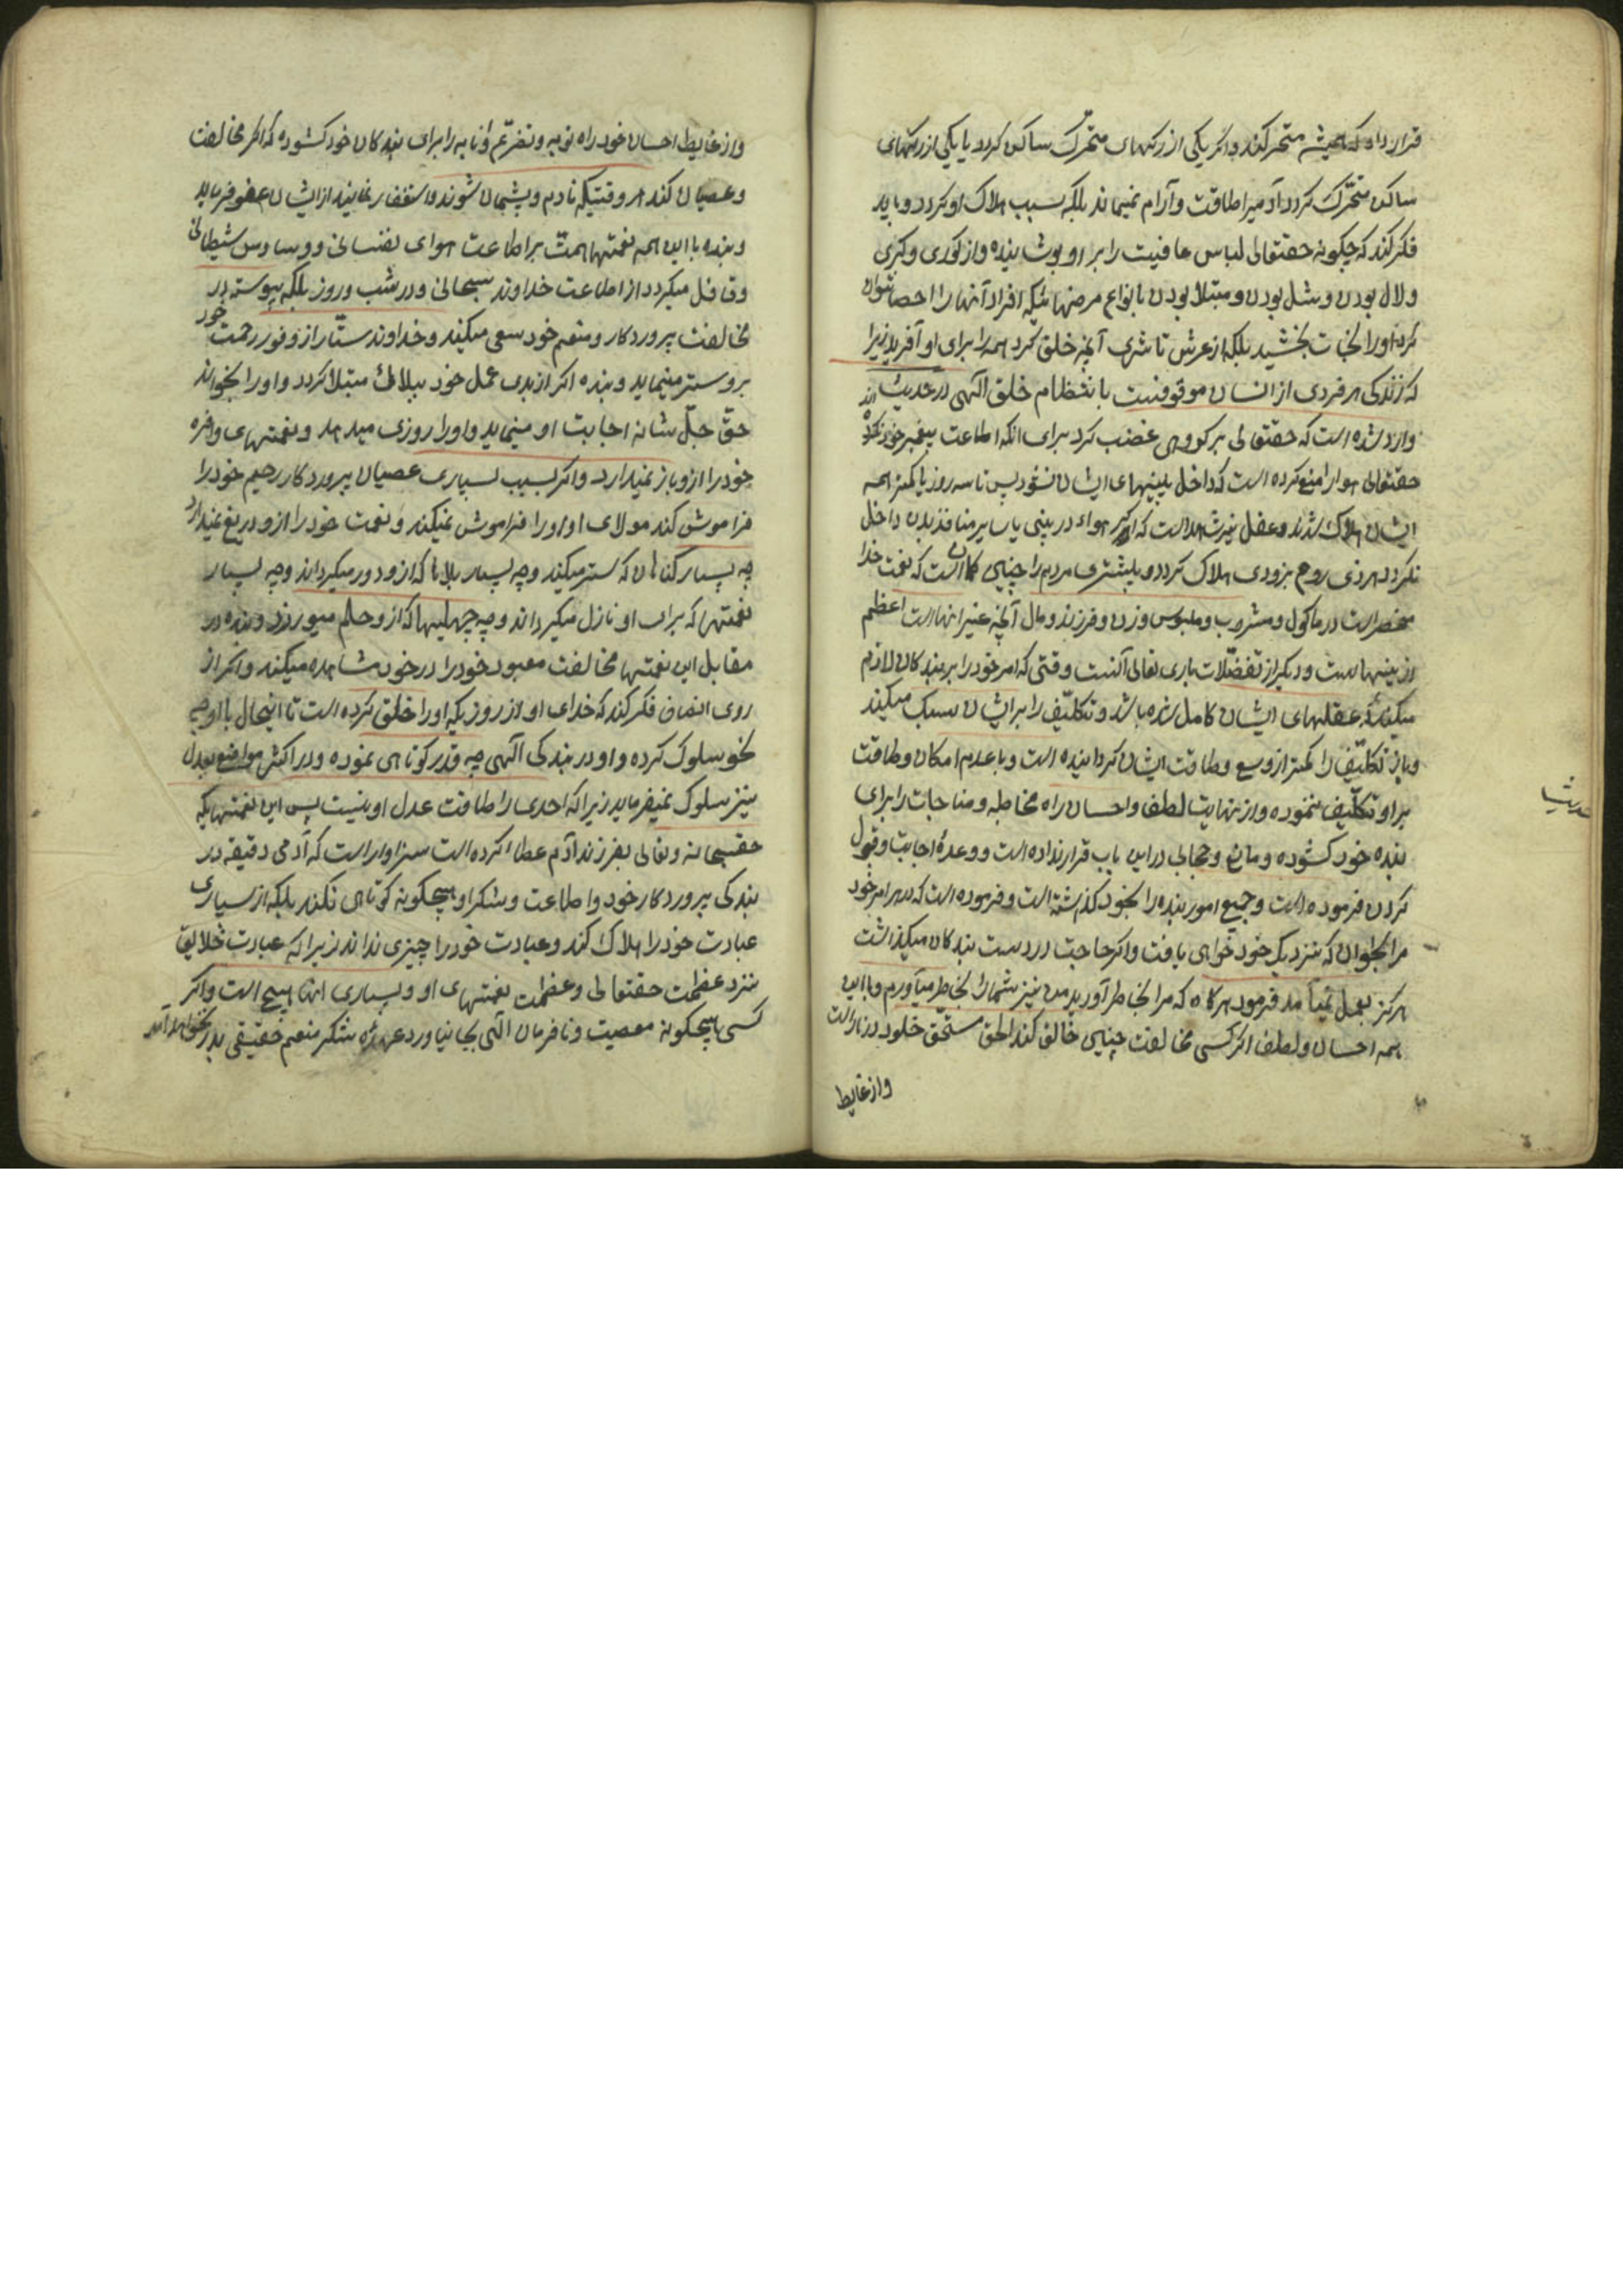 قرار داد که همیشه متحرکند و اگر یکی از رکهای متحرک ساکن کردد یا یکی از رکهای
ساکن متحرّک کردد آدمیرا طاقت و آرام نمیماند بلکه سبب هلاک او کردد و باید
فکر کند که چکونه حقتعالی لباس عافیت را بر او پوشانیده و از کوری و کری
و لال بودن و شل بودن و مبتلا بودن بانواع مرضهائیکه افراد آنها را احصا نتوان
کرد او را نجات بخشید بلکه از عرش تا ثری آنچه خلق کرد همه را برای او آفرید زیرا
که زندکی هر فردی از انسان موقوفست بانتظام خلق الٓهی در حدیث
وارد شده است که حقتعالی بر کروهی غضب کرد برای انکه اطاعت پیغمبر خود نکردند
حقتعالی هوا را منع کرده است که داخل بینیهای ایشان نشود پس تا سه روز یا کمتر همه
ایشان هلاک شدند و عقل نیز شاهد است که اگر هواء در بینی یا سایر منافذ بدن داخل
نکردد هر ذی روح بزودی هلاک کردد و بیشتری مردم را چنین کمان است که نعمت خدا
منحصر است در ماکول و مشروب و ملبوس و زن و فرزند و مال آنچه غیر انهااست اعظم
از اینهاست و دیکر از تفضّلات باری تعالی آنست وقتی که امر خود را بر بندکان لازم
میکند که عقلهای ایشان کامل شده باشد و تکلیف را بر ایشان سبک میکند
و باز تکلیف را کمتر از وسع و طاقت ایشان کردانیده است و با عدم امکان و طاقت
بر او تکلیف ننموده و از نهایت لطف و احسان راه مخاطبه و مناجات را برای
بنده خود کشوده و مانع و حجابی در این باب قرار نداده است و وعدهٔ اجابت و قبول
کردن فرموده است و جمیع امور بنده را بخود کذاشته است و فرموده است که در هر امر خود
مرا بخوان که نزدیک خود خواهی یافت و اکر حاجت در دست بندکان میکذاشت
هرکز بعمل نمیآمد فرمود هرکاه که مرا بخاطر آورید من نیز شما را بخاطر میآورم و با این
همه احسان و لطف اکر کسی مخالفت چنین خالق کند الحق مستحق خلود در نار است
و از غایط
و از غایط احسان خود راه توبه و تضرّع و انابه را برای بندکان خود کشوده که اکر مخالفت
و عصیان کند هر وقتیکه نادم و پشیمان شوند و استغفار نمایند از ایشان عفو فرماید
و بنده با این همه نعمتها همت بر اطاعت هوای نفسانی و وساوس شیطانی
و غافل میکردد از اطاعت خداوند سبحانی و در شب و روز بلکه پیوسته در
مخالفت پروردکار و منعم خود سعی میکند و خداوند ستّار از وفور رحمت خود
برو ستر مینماید و بنده اکر از بدی عمل خود ببلائی مبتلا کردد و او را بخواند
حقّ جلّ شانه اجابت او مینماید و او را روزی میدهد و نعمتهای وافره
خود را از و باز نمیدارد و اکر بسبب بسیاری عصیان پروردکار رحیم خود را
فراموش کند مولای او او را فراموش نمیکند و نعمت خود را از و دریغ نمیدارد
چه بسیار کناهان که ستر میکند و چه بسیار بلاها که از و دور میکرداند و چه بسیار
نعمتها که برای او نازل میکرداند و چه جهلها که از و حلم میورزد و بنده در
مقابل این نعمتها مخالفت معبود خود را در خود مشاهده میکند و اکر از
روی انصاف فکر کند که خدای او از روزیکه او را خلق کرده است تا اینحال با او چه
نحو سلوک کرده و او در بندکی الٓهی چه قدر کوتاهی نموده و در اکثر مواضع بعدل
نیز سلوک نمیفرماید زیرا که احدی را طاقت عدل او نیست پس این نعمتهائیکه
حقسبحانه و تعالی بفرزند آدم عطا کرده است سزاوار است که آدمی دقیقه در
بندکی پروردکار خود و اطاعت و شکر او هیچکونه کوتاهی نکند بلکه از بسیاری
عبادت خود را هلاک کند و عبادت خود را چیزی نداند زیرا که عبادت خلایق
نزد عظمت حقتعالی و عظمت نعمتهای او و بسیاری انها هیچ است و اکر
کسی هیچکونه معصیت و نافرمان الٓهی بجا نیاورد عهدهٔ شکر منعم حقیقی بدر نخواهد آمد